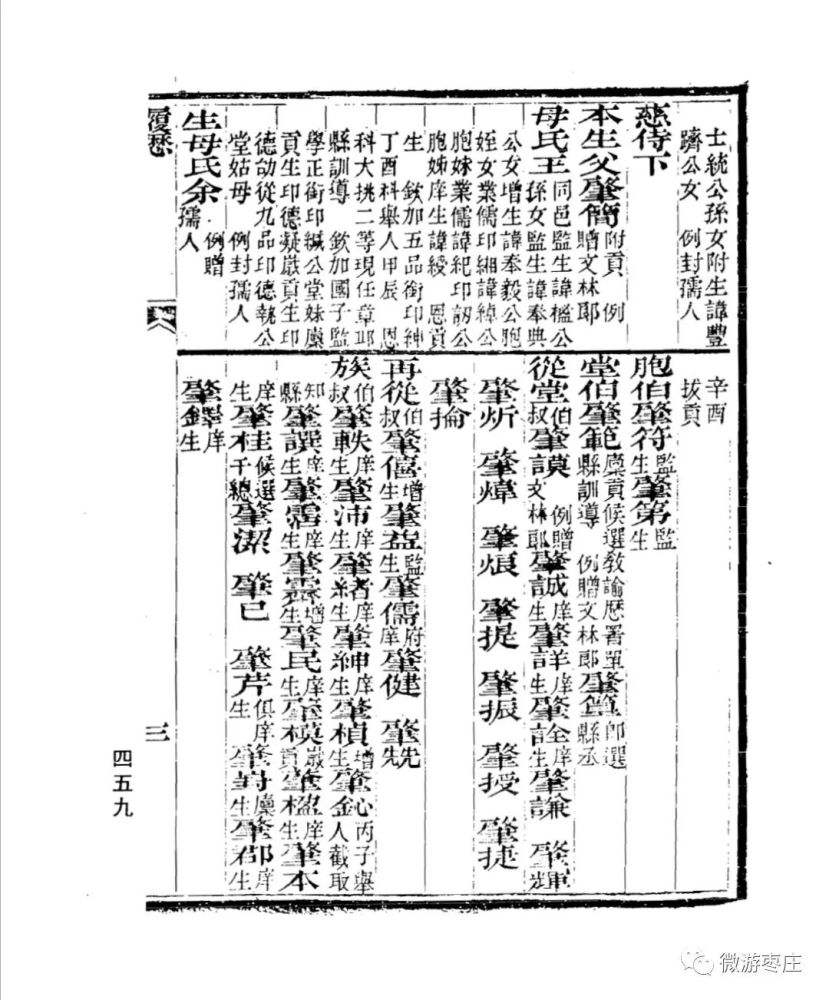 士統公孫女附生諱豐
躋公女 例封孺人
慈侍下
本生父肇簡附貢 例
贈文林郎
母氏王同邑監生諱檻公
孫女監生諱奉典
公女增生諱奉毅公胞
姪女業儒印緗諱綽公
胞妹業儒諱紀印韌公
胞姊庠生諱綬 恩貢
生 欽加五品銜印紳
丁酉科舉人甲辰 恩
科大挑二等現任章邱
縣訓導 欽加國子監
學正銜印緘公堂妹廩
貢生印德凝歲貢生印
德劭從九品印德執公
堂姑母 例封孺人
生母氏余 例贈
孺人
履歷
辛酉
拔貢
胞伯肇符監生肇第監生
堂伯肇範廩貢候選教諭歷署單縣訓導 例贈文林郎肇 即選縣丞
從堂伯叔肇謨 例贈文林郎肇誠庠生肇詳庠生肇詮庠生肇謙 肇輝
肇炘 肇煒 肇烺 肇提 肇振 肇授 肇捷
肇掄
再從伯叔肇僖增生肇益監生肇儒府庠肇健 肇兟
族伯叔肇軼庠生肇沛庠生肇緒庠生肇紳庠生肇楨增生肇鈊丙子舉人截取
知縣肇譔庠生肇霱庠生肇靈增生肇民庠生肇模歲貢肇楹庠生肇本
庠生肇桂候選千總肇潔 肇已 肇芹俱庠生肇封廩生肇郡庠生
肇鐸庠生
三
四五九
微游枣庄